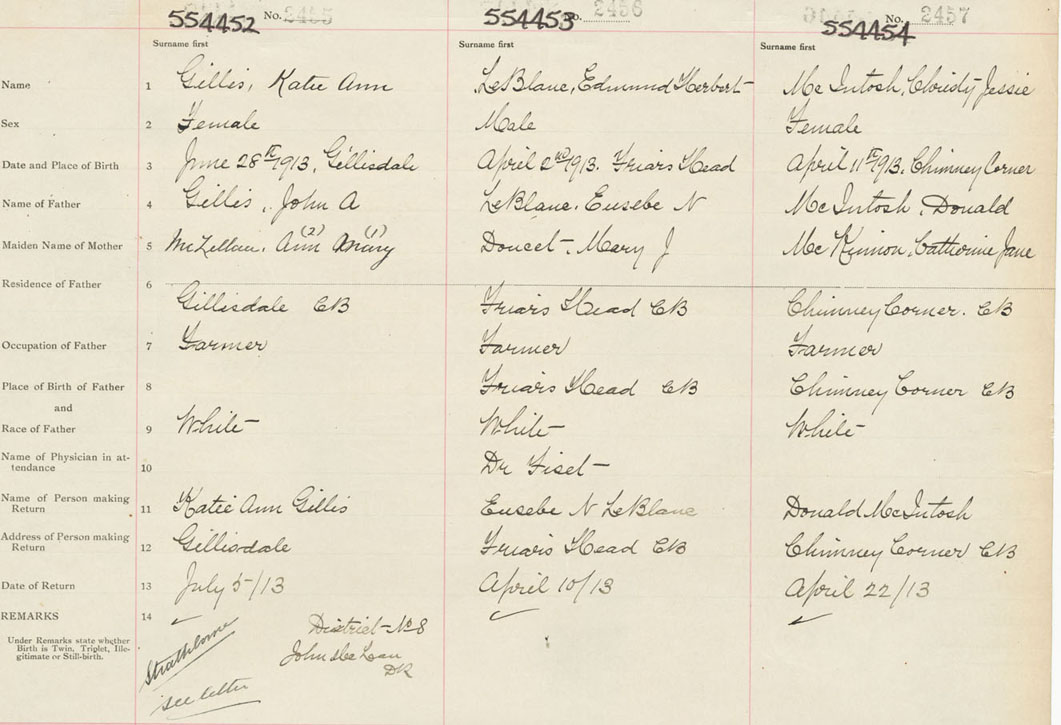 554452 No. 2455 554453 No. 2456 554454 No. 2457
Surname first Surname first Surname first
Name 1 Gillis, Katie Ann LeBlanc, Edmund Herbert McIntosh, Christy Jessie
Sex 2 Female Male Female
Date and Place of Birth 3 June 28th 1913, Gillisdale April 2nd 1913. Friars Head April 11th 1913. Chimney Corner
Name of Father 4 Gillis, John A LeBlanc, Eusebe N McIntosh, Donald
Maiden Name of Mother 5 McLellan, Ann (2) Mary (1) Doucet, Mary J McKinnon, Catherine Jane
Residence of Father 6
Gillisdale CB Friars Head CB Chimney Corner. CB
Occupation of Father 7 Farmer Farmer Farmer
Place of Birth of Father 8 Friars Head CB Chimney Corner CB
and
Race of Father 9 White White White
Name of Physician in at-
tendance 10 Dr Fiset
Name of Person making
Return 11 Katie Ann Gillis Eusebe N LeBlanc Donald McIntosh
Address of Person making
Return 12 Gillisdale Friars Head CB Chimney Corner CB
Date of Return 13 July 5/13 April 10/13 April 22/13
REMARKS 14
Under Remarks state whether
Birth is Twin, Triplet, Ille-
gitimate or Still-birth.
District No 8
John McLean
DR
Strathlorne
see letter